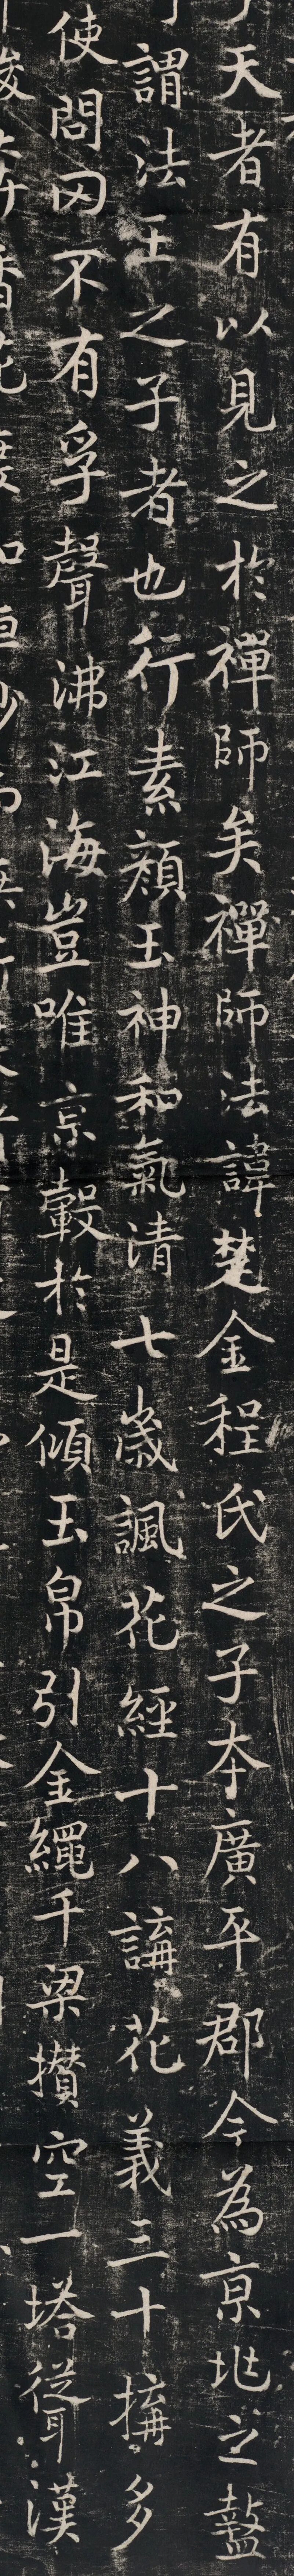 天者有以見之於禪師矣禪師法諱楚金程氏之子本廣平郡今為京地之盩
謂法王之子者也行素顏玉神和氣清七歲諷花經十八講花義三十搆多
使問罔不有孚聲沸江海豈唯京轂於是傾玉帛引金繩千梁攢空一塔從漢